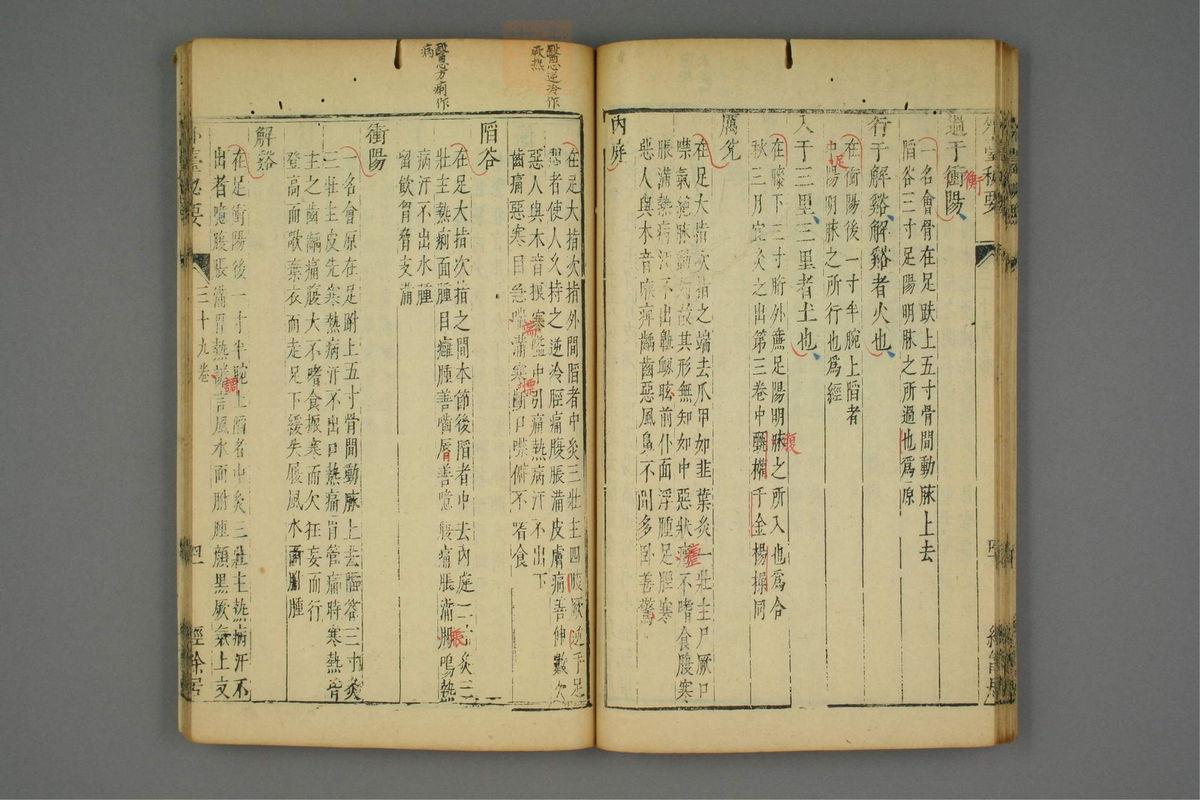 外臺秘要
過于衝陽
一名會骨在足趺上五寸骨間動脉上去
陷谷三寸足陽明脉之所過也為原
行于解谿解谿者火也
在衝陽後一寸半腕上陷者
中足陽明脉之所行也為經
入于三里三里者土也
在膝下三寸胻外廉足陽明脉之所入也為合
秋三月宜灸之出第三卷中甄權千金楊操同
厲兊
在足大指次指之端去爪甲如韭葉灸一壯主尸厥口
噤氣絶脉動如故其形無知如中惡狀瘧不嗜食腹寒
脹滿熱病汗不出鼽衂眩前仆面浮腫足脛寒
惡人與木音喉痹齲齒惡風鼻不聞多卧善驚
内庭
在足大指次指外間陷者中灸三壯主四肢厥逆手足
悶者使人久持之逆冷脛痛腹脹滿皮膚痛善伸數欠
惡人與木音振寒嗌中引痛熱病汗不出下
齒痛惡寒目急喘滿寒慄斷口噤僻不嗜食
陷谷
在足大指次指之間本節後陷者中去内庭二寸灸三
壯主熱痢面腫目癰腫善嚙唇善噫腹痛脹滿腸鳴熱
病汗不出水腫
留飲胷脅支滿
衝陽
一名會原在足跗上五寸骨間動脉上去陷谷三寸灸
三壯主皮先寒熱病汗不出口熱痛胃管痛時寒熱皆
主之齒齲痛腹大不嗜食振寒而欠狂妄而行
登高而歌棄衣而走足下緩失履風水面胕腫
解谿
在足衝陽後一寸半腕上陷者中灸三壯主熱病汗不
出者噫腹脹滿胃熱譫言風水面胕腫顏黑厥氣上支
外臺秘要
三十九卷
四
經餘居
醫心逆冷作
厥热
醫心方痢作
病